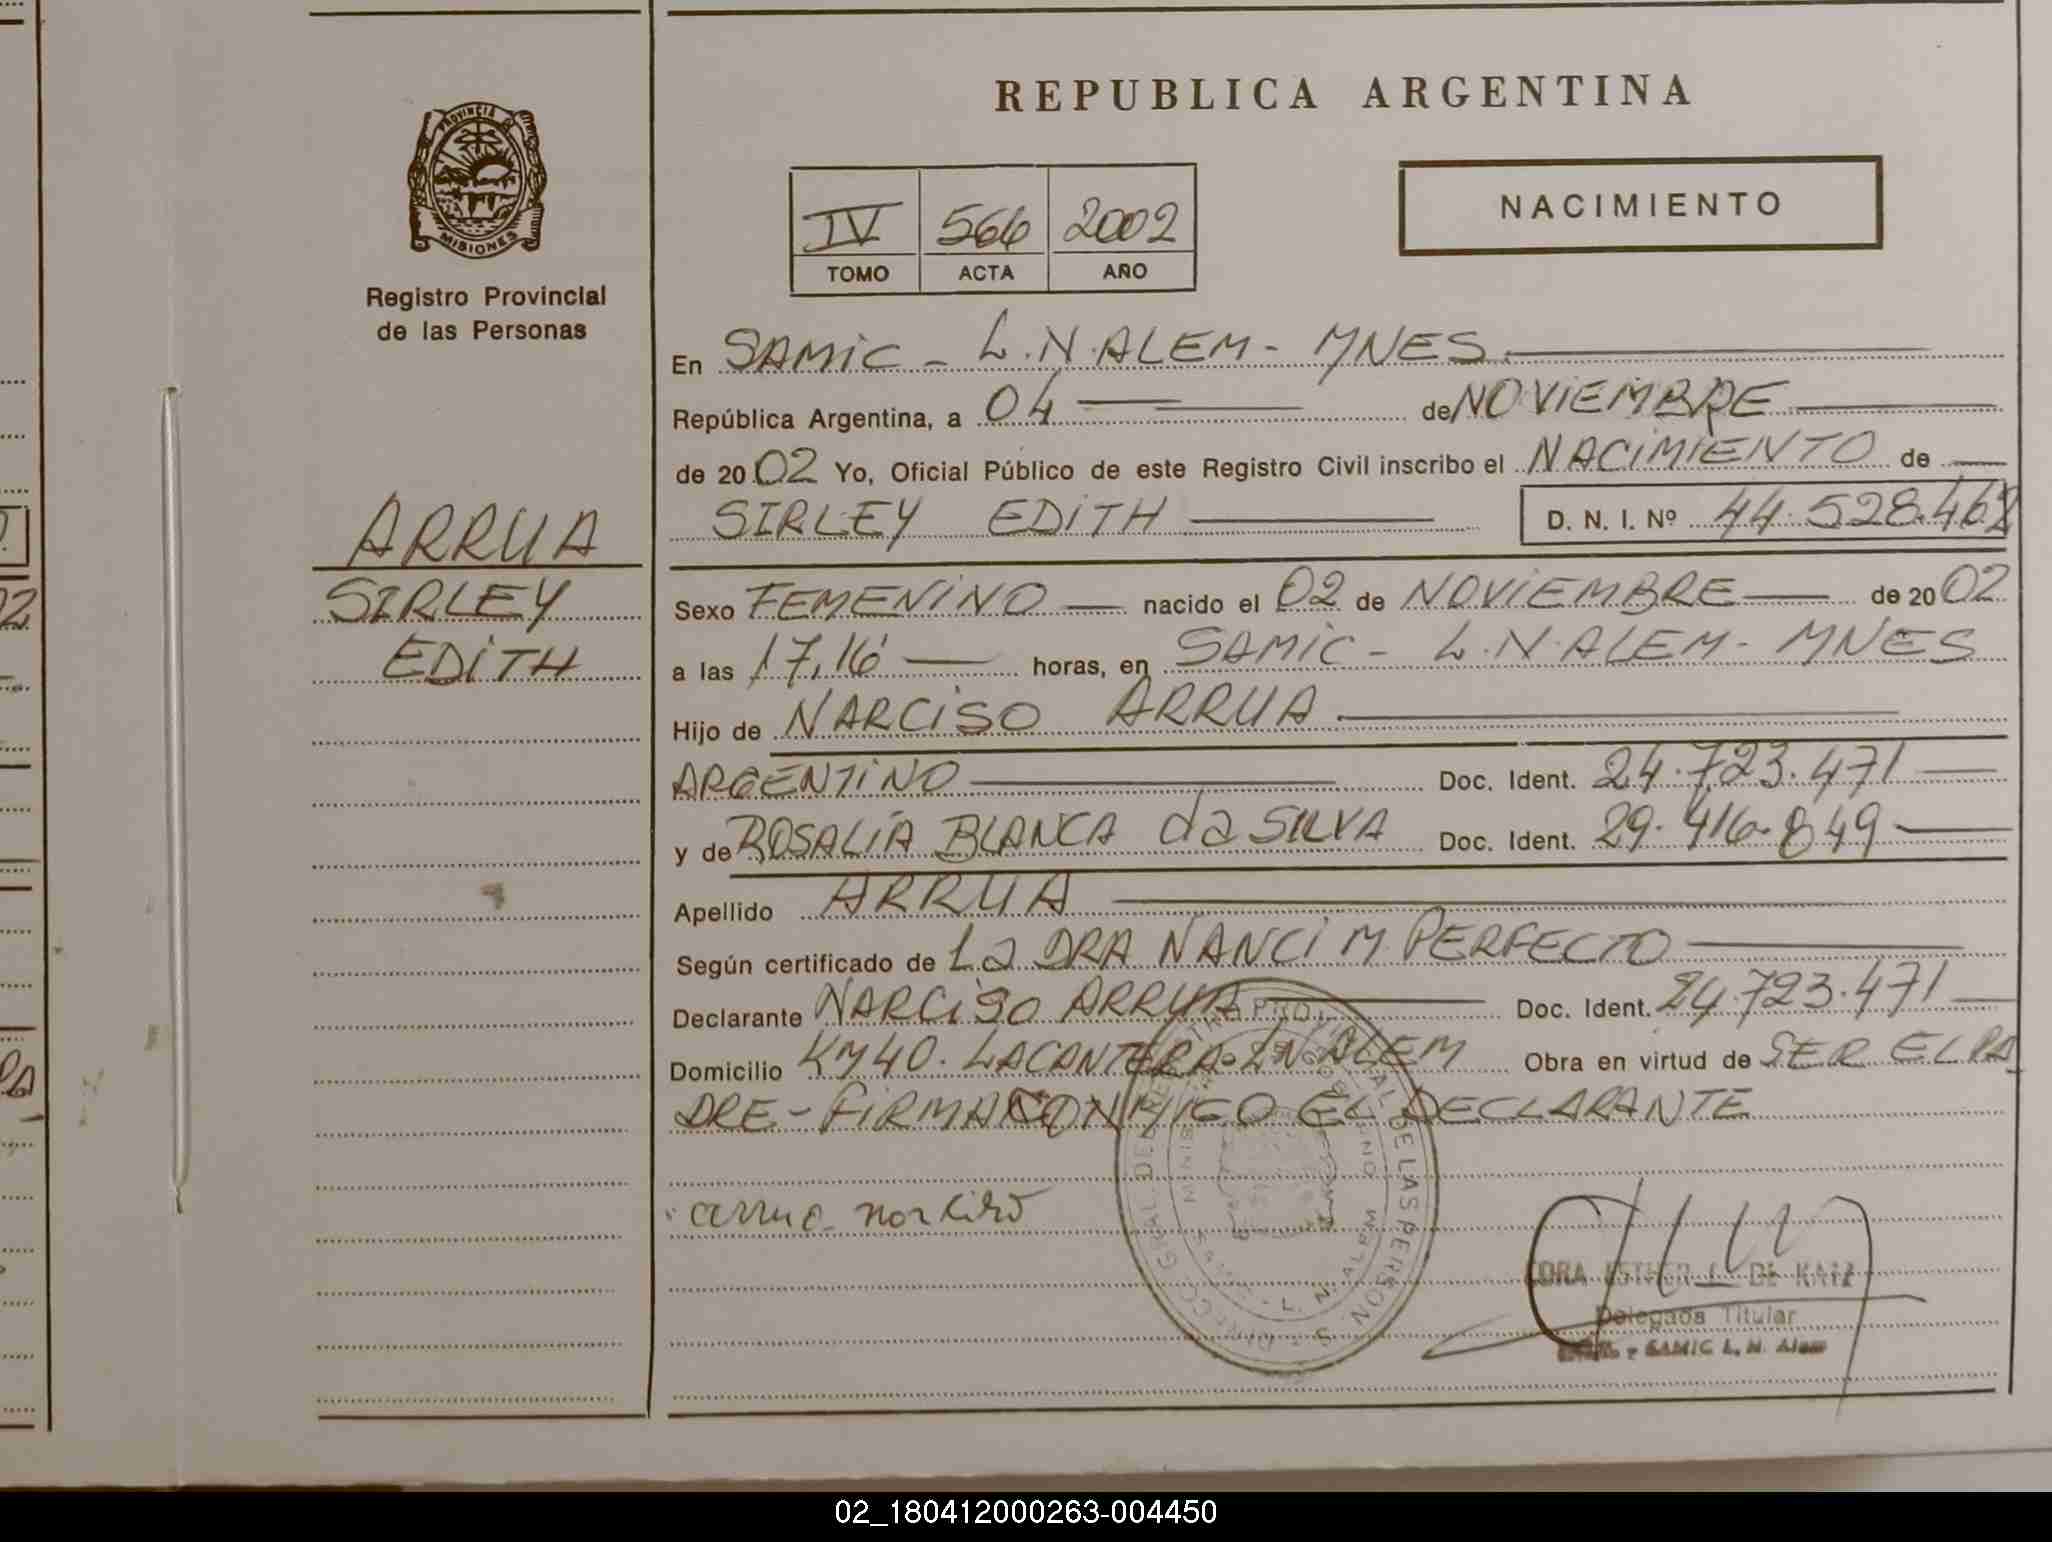 REPUBLICA ARGENTINA
PROVINCIA
MISIONES
Registro Provincial
de las Personas
IV 566 2002
TOMO ACTA AÑO
NACIMIENTO
En SAMIC - L.N.ALEM - MNES
República Argentina, a 04 de NOVIEMBRE
de 2002 Yo, Oficial Público de este Registro Civil inscribo el NACIMIENTO de
SIRLEY EDITH D. N. I. Nº 44.528.462
ARRUA
SIRLEY
EDITH
Sexo FEMENINO nacido el 02 de NOVIEMBRE de 2002
a las 17,16 horas, en SAMIC - L.N.ALEM - MNES
Hijo de NARCISO ARRUA
ARGENTINO Doc. Ident. 24.723.471
y de ROSALIA BLANCA da SILVA Doc. Ident. 29.416.849
Apellido ARRUA
Según certificado de La DRA NANCI M. PERFECTO
Declarante NARCISO ARRUA Doc. Ident. 24.723.471
Domicilio KM40. LA CANTERA - LN ALEM Obra en virtud de SER EL PA
DRE - FIRMA CONMIGO EL DECLARANTE
DE LAS PERSONAS
L. N. ALEM
DE KATZ
Titular
SAMIC L. N. Alem
02_180412000263-004450